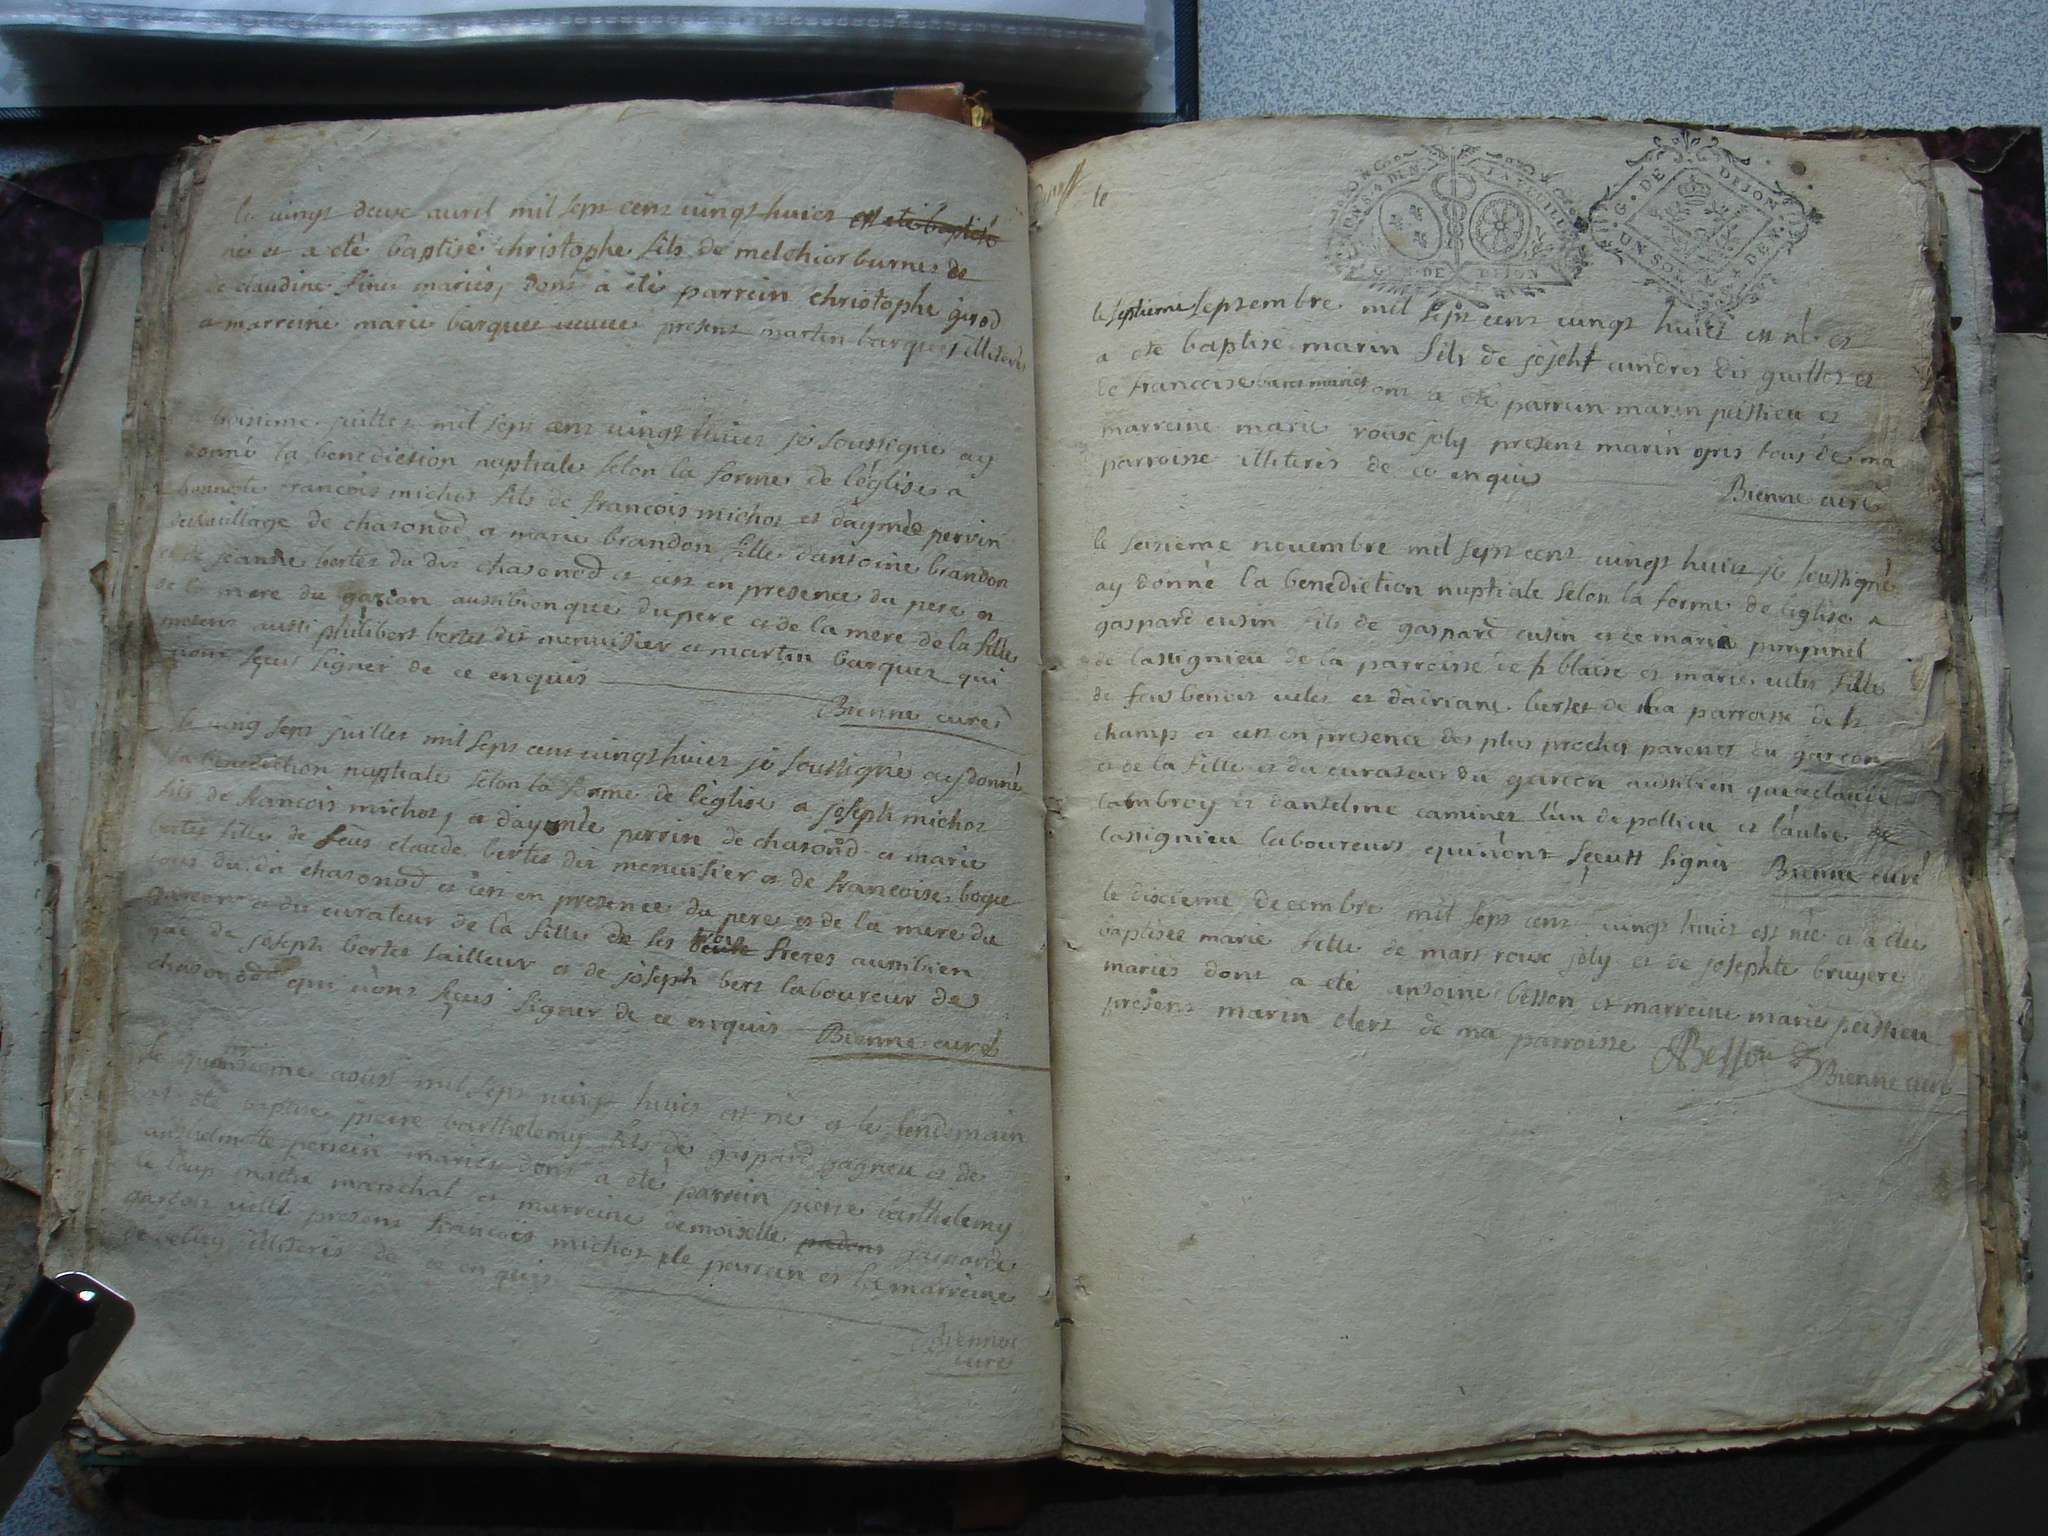 le vingt deux avril mil sept cent vingt huict est été baptisé
né et a eté baptisé christophe fils de melchior burnet de
de claudine finet mariés, dont à eté parrein christophe girod
a marreine marie barquet veuve present martin barquet illiterés
troisieme juillet mil sept cent vingt huict je soussigné ay
donné la benediction nuptiale selon la forme de l'églises a
honneste francois michot fils de francois michot et d'aymée perrin
du village de chasonod a marie brandon fille d'antoine brandon
et de jeanne bertet du dit chasonod et c'est en presence du pere et
de la mere du garçon aussibienque du pere et de la mere de la fille
present aussi philibert bertet dit menuisier et martin barquet qui
n'ont sçeus signer de ce enquis
Bienne curé
le vingt sept juillet mil sept cent vingt huict je soussigné ay donné
la benediction nuptiale selon la forme de l'église a joseph michot
fils de francois michot, et d'aymée perrin de chasonod et marie
bertet fille de feus claude bertet dit menuisier et de francoise boque
tous du dit chasonod et c'est en presence du pere et de la mere du
garcon et du curateur de la fille de ses trois freres aussibien
que de joseph bertet tailleur et de joseph bert laboureur de
chasonod qui n'ont sçeus signer de ce enquis Bienne curé
le quinsieme aoust mil sept vingt huict est né et le lendemain
at eté baptisé pierre barthelemy fils de gaspard gagneu et de
anthelmette perrein mariés dont a eté parrein pierre barthelemy
le loup maitre mareschal et marreine demoiselle gasparde
present francois michot le parrein et la marreine
illiterés de ce enquis
Bienne
curé
le
GEN. DE DIJON
G. DE DIJON
UN SOL
le septieme septembre mil sept cent vingt huict est né et
a eté baptisé marin fils de joseht andres dit guillot et
de francoise baret mariés dont a eté parrein marin peissieu et
marreine marie roux joly present marin opris tous de ma
parroisse illiterés de ce enquis
Bienne curé
le seisieme novembre mil sept cent vingt huict je soussigné
ay donné la benediction nuptiale selon la forme de l'église a
gaspard cusin fils de gaspard cusin et de marie pimpinel
de lassignieu de la parroisse de st blaise et marie velet fille
de feu benoit velet et d'adriane bertet de la parroisse de st
champ et c'est en presence des plus proches parents du garcon
et de la fille et du curateur du garcon aussibien que claude
lambroy et d'antelme caminet l'un de pollieu et l'autre de
lassignieu laboureurs qui n'ont sçeutt signer Bienne curé
le dixieme decembre mil sept cent vingt huict est née et a eté
baptisée marie fille de mart roux joly et de josephte bruyere
mariés dont a eté antoine besson et marreine marie peissieu
present marin clert de ma parroisse ABesson Bienne curé